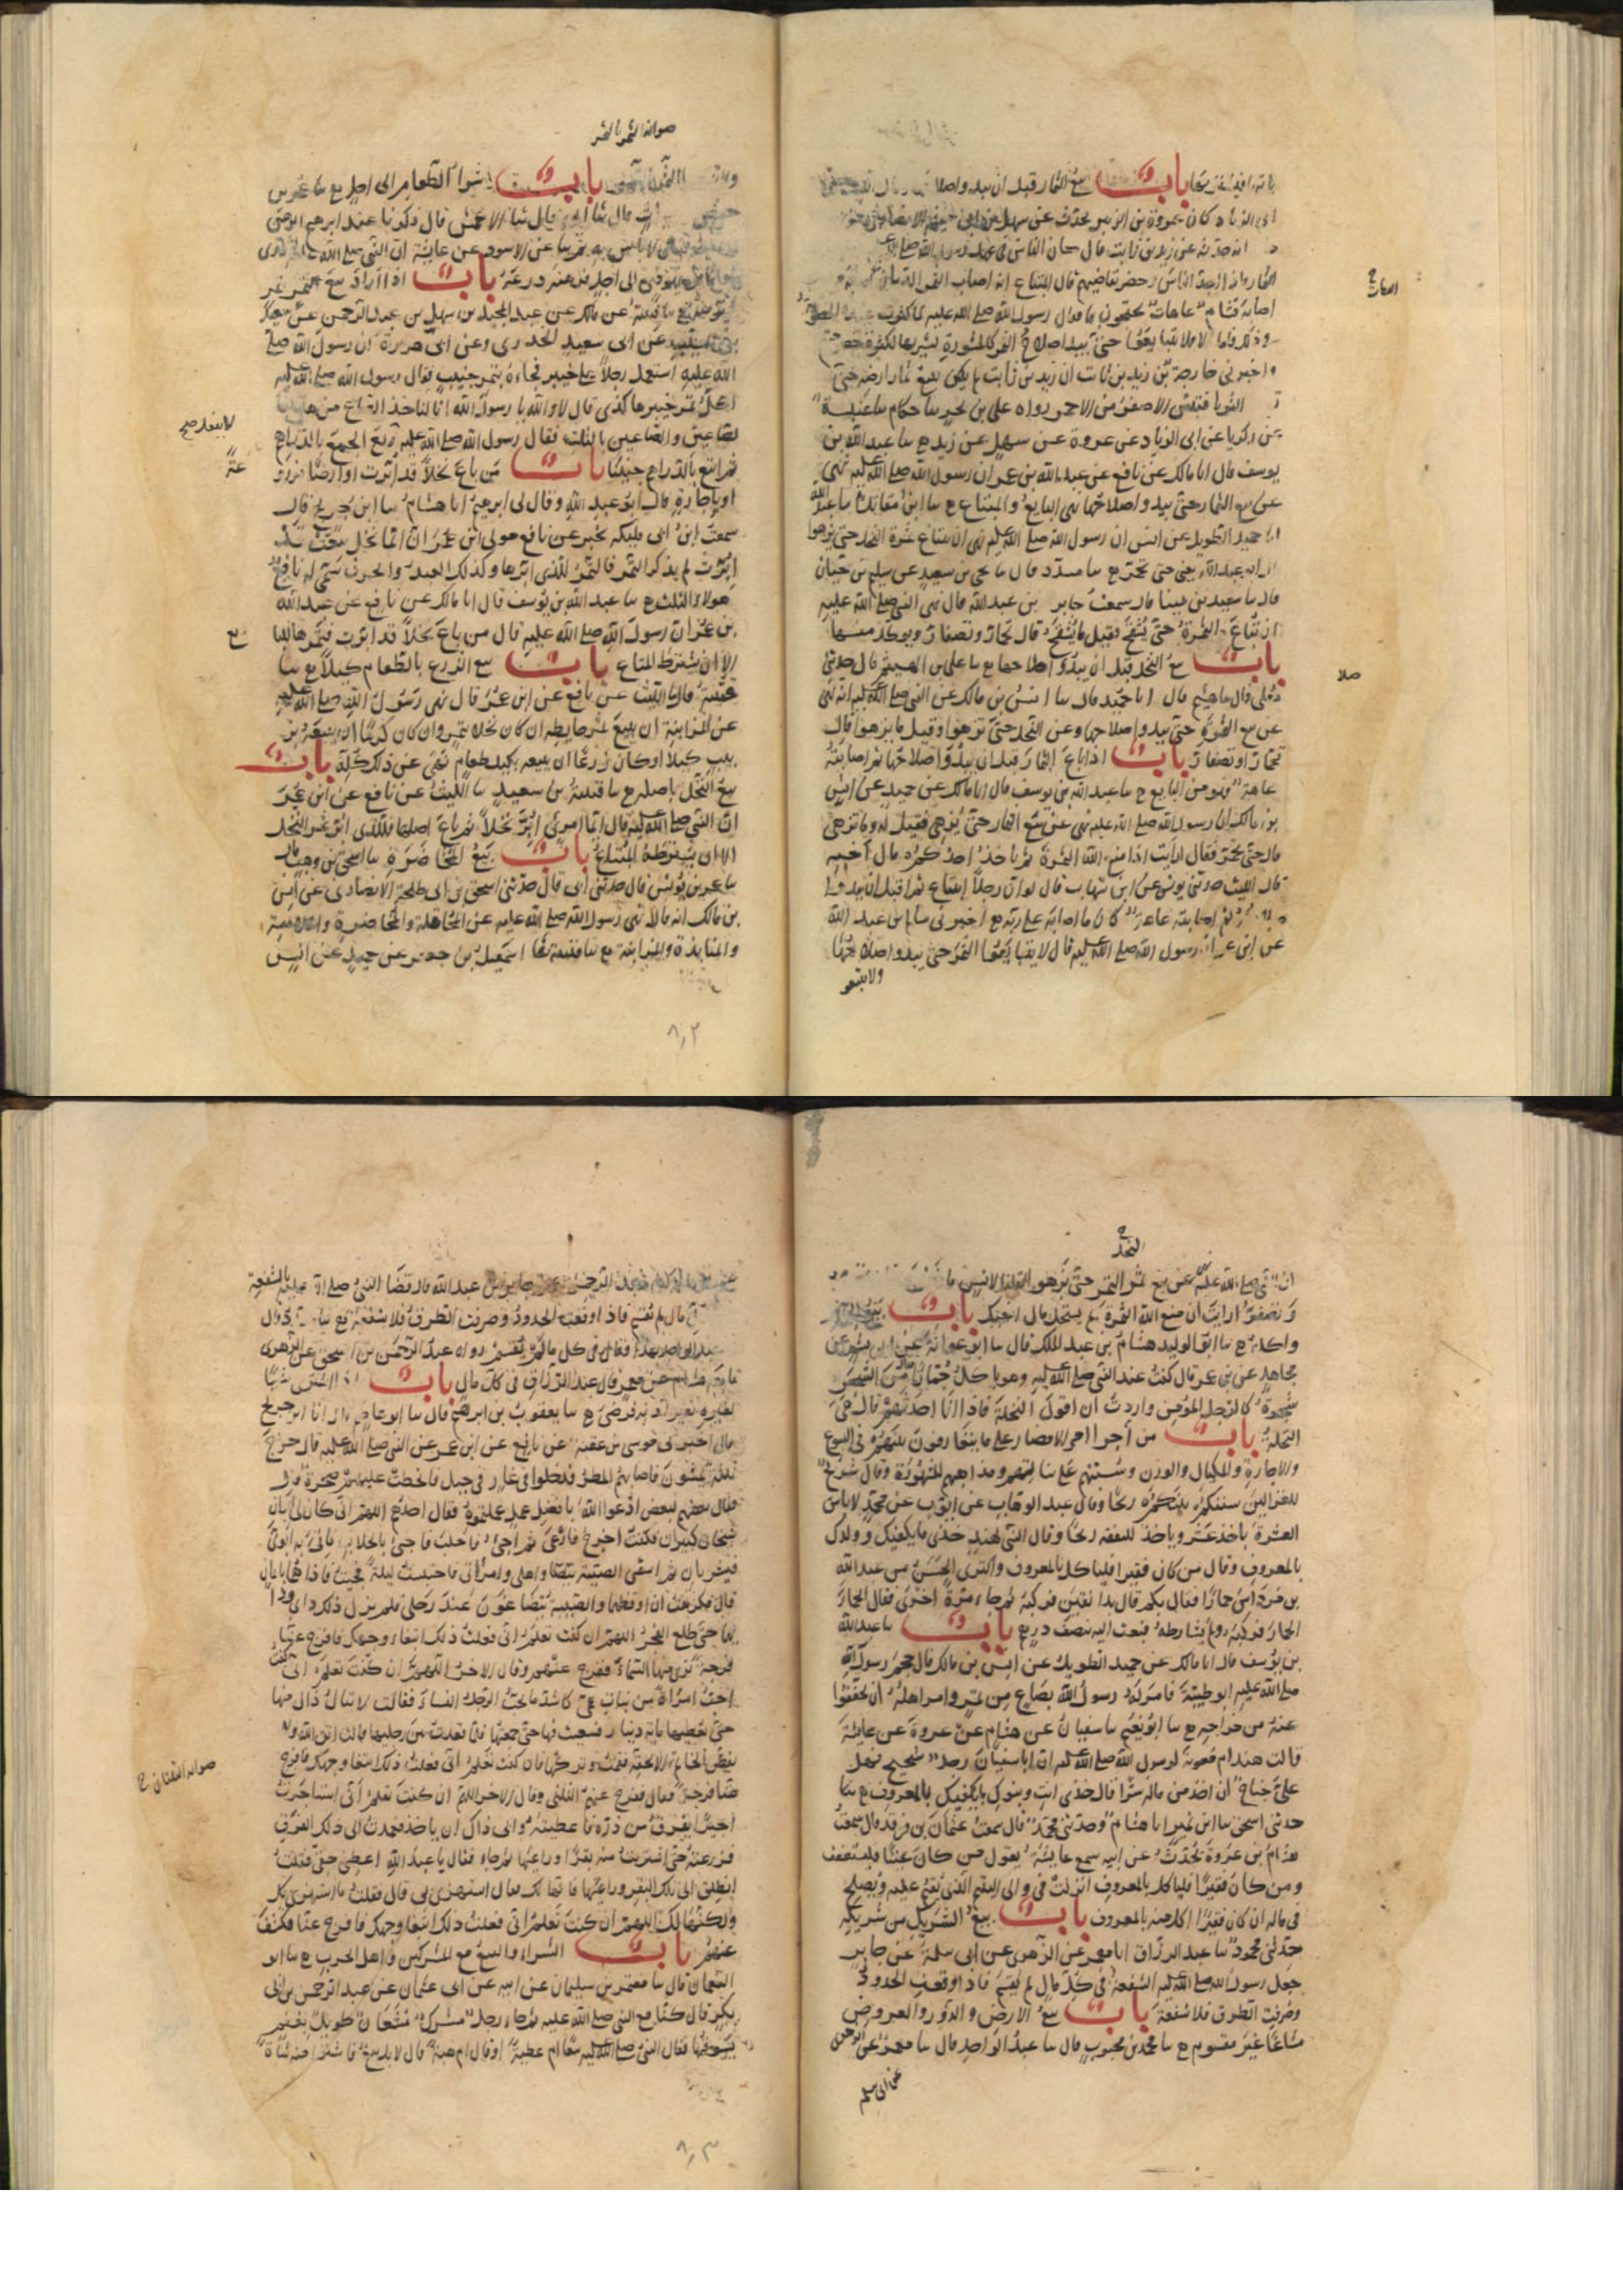 باب بيع الثمار قبل ان يبدو صلاحها
ابى الزناد كان عروة بن الزبير يحدث عن سهل بن ابى حثمة الانصارى
انه حدثه عن زيد بن ثابت قال كان الناس فى عهد رسول الله صلى الله
الثمار فاذا جد الناس وحضر تقاضيهم قال المبتاع انه اصاب الثمر الدمان
اصابه قشام عاهات يحتجون بها فقال رسول الله صلى الله عليه لما كثرت عنده الخصومة
فى ذلك فاما لا فلا تتبايعوا حتى يبدو صلاح الثمر كالمشورة يشير بها لكثرة خصومتهم
واخبرنى خارجة بن زيد بن ثابت ان زيد بن ثابت لم يكن يبيع ثمار ارضه حتى
الثريا فيتبين الاصفر من الاحمر رواه على بن بحر سا حكام سا عنبسة
عن زكريا عن ابى الزناد عن عروة عن سهل عن زيد ح سا عبد الله بن
يوسف قال انا مالك عن نافع عن عبد الله بن عمر ان رسول الله صلى الله عليه نهى
عن بيع الثمار حتى يبدو صلاحها نهى البايع والمبتاع ح سا ابن مقاتل سا عبد الله
انا حميد الطويل عن انس ان رسول الله صلى الله عليه نهى ان تباع ثمرة النخل حتى تزهوا
قال ابو عبد الله يعنى حتى تحمر ح سا مسدد قال سا يحيى بن سعيد عن سليم بن حيان
قال سا سعيد بن مينا قال سمعت جابر بن عبد الله قال نهى النبى صلى الله عليه
ان تباع الثمرة حتى تشقح فقيل ما تشقح قال تحمار وتصفار ويوكل منها
باب بيع النخل قبل ان يبدو صلاحها ح سا على بن الهيثم قال حدثنى
معلى قال سا هشيم قال انا حميد قال سا انس بن مالك عن النبى صلى الله عليه انه نهى
عن بيع الثمرة حتى يبدو صلاحها وعن النخل حتى تزهوا وقيل ما يزهوا قال
تحمار او تصفار باب اذا باع الثمار قبل ان يبدو صلاحها ثم اصابته
عاهة فهو من البايع ح سا عبد الله بن يوسف قال انا مالك عن حميد عن انس
بن مالك ان رسول الله صلى الله عليه نهى عن بيع الثمار حتى تزهى فقيل له وما تزهى
قال حتى تحمر فقال ارايت اذا منع الله الثمرة بم ياخذ احدكم مال اخيه
قال الليث حدثنى يونس عن ابن شهاب قال لو ان رجلا ابتاع ثمرا قبل ان يبدوا
ثم اصابته عاهة كان ما اصابه على ربه ح اخبرنى سالم بن عبد الله
عن ابن عمر ان رسول الله صلى الله عليه قال لا تتبايعوا الثمر حتى يبدو صلاحها
ولا تبيعوا
صوابه الثمر بالتمر
باب شراء الطعام الى اجل ح سا عمر بن
قال سا ابى قال سا الاعمش قال ذكرنا عند ابرهيم الرهن
عن الاسود عن عايشة ان النبى صلى الله عليه اشترى
الى اجل فرهنه درعه باب اذا اراد بيع تمر بتمر
سا قتيبة عن مالك عن عبد المجيد بن سهيل بن عبد الرحمن عن سعيد
بن المسيب عن ابى سعيد الخدرى وعن ابى هريرة ان رسول الله صلى
الله عليه استعمل رجلا على خيبر فجاءه بتمر جنيب فقال رسول الله صلى الله عليه
اكل تمر خيبر هاكذى قال لا والله يا رسول الله انا لناخذ الصاع من هذا
بصاعين والصاعين بالثلث فقال رسول الله صلى الله عليه لا تفعل بع الجمع بالدراهم
ثم ابتع بالدراهم جنيبا باب من باع نخلا قد ابرت او ارضا مزروعة
او باجارة قال ابو عبد الله وقال لى ابرهيم انا هشام سا ابن جريج قال
سمعت ابن ابى مليكة يخبر عن نافع مولى ابن عمر ان ايما نخل بيعت قد
ابرت لم يذكر الثمر فالثمر للذى ابرها وكذلك العبد والحرث سمى له نافع
هولاء الثلث ح سا عبد الله بن يوسف قال انا مالك عن نافع عن عبد الله
بن عمر ان رسول الله صلى الله عليه قال من باع نخلا قد ابرت فثمرها للبايع
الا ان يشترط المبتاع باب بيع الزرع بالطعام كيلا ح سا
قتيبة قال سا الليث عن نافع عن ابن عمر قال نهى رسول الله صلى الله عليه
عن المزابنة ان يبيع ثمر حايطه ان كان نخلا بتمر وان كان كرما ان يبيعه
بزبيب كيلا او كان زرعا ان يبيعه بكيل طعام نهى عن ذلك كله باب
بيع النخل باصله ح سا قتيبة بن سعيد سا الليث عن نافع عن ابن عمر
ان النبى صلى الله عليه قال ايما امرئ ابر نخلا ثم باع اصلها فللذى ابر ثمر النخل
الا ان يشترطه المبتاع باب بيع المخاضرة سا اسحق بن وهب
سا عمر بن يونس قال حدثنى ابى قال حدثنى اسحق بن ابى طلحة الانصارى عن انس
بن مالك انه قال نهى رسول الله صلى الله عليه عن المحاقلة والمخاضرة والملامسة
والمنابذة والمزابنة ح سا قتيبة سا اسمعيل بن جعفر عن حميد عن انس
٨٠٢
النخل
ان النبى صلى الله عليه نهى عن بيع ثمر التمر حتى يزهو فقلنا لانس ما
وتصفر ارايت ان منع الله الثمرة بم يستحل مال اخيك باب بيع الجمار
واكله ح سا ابو الوليد هشام بن عبد الملك قال سا ابو عوانة عن ابى بشر عن
مجاهد عن ابن عمر قال كنت عند النبى صلى الله عليه وهو ياكل جمارا فقال من الشجر
شجرة كالرجل المؤمن واردت ان اقول النخلة فاذا انا احدثهم قال هى
النخلة باب من اجرا امر الامصار على ما يتعارفون بينهم فى البيوع
والاجارة والمكيال والوزن وسننهم على نياتهم ومذاهبهم المشهورة وقال شريح
للغزالين سنتكم بينكم ربحا وقال عبد الوهاب عن ايوب عن محمد لا باس
العشرة باحد عشر وياخذ للنفقة ربحا وقال النبى لهند خذى ما يكفيك وولدك
بالمعروف وقال من كان فقيرا فلياكل بالمعروف واكترى الحسن من عبد الله
بن مرداس حمارا فقال بكم قال بدانقين فركبه ثم جاء مرة اخرى فقال الحمار
الحمار فركبه ولم يشارطه فبعث اليه نصف درهم باب سا عبد الله
بن يوسف قال انا مالك عن حميد الطويل عن انس بن مالك قال حجم رسول الله
صلى الله عليه ابو طيبة فامر له رسول الله بصاع من تمر وامر اهله ان يخففوا
عنه من خراجه ح سا ابو نعيم سا سفيان عن هشام عن عروة عن عايشة
قالت هند ام معوية لرسول الله صلى الله عليه ان ابا سفيان رجل شحيح فهل
على جناح ان اخذ من ماله سرا قال خذى انت وبنوك ما يكفيك بالمعروف ح سا
حدثنى اسحق سا ابن نمير انا هشام وحدثنى محمد قال سمعت عثمان بن فرقد قال سمعت
هشام بن عروة يحدث عن ابيه سمع عايشة يقول من كان غنيا فليستعفف
ومن كان فقيرا فلياكل بالمعروف انزلت فى والى اليتيم الذى يقيم عليه ويصلح
فى ماله ان كان فقيرا اكل منه بالمعروف باب بيع الشريك من شريكه
حدثنى محمود سا عبد الرزاق انا معمر عن الزهرى عن ابى سلمة عن جابر
جعل رسول الله صلى الله عليه الشفعة فى كل مال لم يقسم فاذا وقعت الحدود
وصرفت الطرق فلا شفعة باب بيع الارض والدور والعروض
مشاعا غير مقسوم ح سا محمد بن محبوب قال سا عبد الواحد قال سا معمر عن الزهرى
عن ابى سلمة
عن جابر بن عبد الله قال قضا النبى صلى الله عليه بالشفعة
مال لم يقسم فاذا وقعت الحدود وصرفت الطرق فلا شفعة ح سا
عبد الواحد بهذا وقال فى كل ما لم يقسم رواه عبد الرحمن بن اسحق عن الزهرى
تابعه هشام عن معمر قال عبد الرزاق فى كل مال باب اذا اشترى شيئا
لغيره بغير اذنه فرضى ح سا يعقوب بن ابرهيم قال سا ابو عاصم قال انا ابن جريج
قال اخبرنى موسى بن عقبة عن نافع عن ابن عمر عن النبى صلى الله عليه قال خرج
ثلثة يمشون فاصابهم المطر فدخلوا فى غار فى جبل فانحطت عليهم صخرة قال
فقال بعضهم لبعض ادعوا الله بافضل عمل عملتموه فقال احدهم اللهم انى كان لى ابوان
شيخان كبيران فكنت اخرج فارعى ثم اجئ فاحلب فاجئ بالحلاب فاتى به ابوى
فيشربان ثم اسقى الصبية واهلى وامراتى فاحتبست ليلة فجئت فاذا هما نايمان
قال فكرهت ان اوقظهما والصبية يتضاغون عند رجلى فلم يزل ذلك دابى ودا
بهما حتى طلع الفجر اللهم ان كنت تعلم انى فعلت ذلك ابتغاء وجهك فافرج عنا
فرجة نرى منها السماء ففرج عنهم وقال الاخر اللهم ان كنت تعلم انى كنت
احب امراة من بنات عمى كاشد ما يحب الرجل النساء فقالت لا تنال ذاك منها
حتى تعطيها ماية دينار فسعيت فيها حتى جمعتها فلما قعدت بين رجليها قالت اتق الله ولا
تفض الخاتم الا بحقه فقمت وتركتها فان كنت تعلم انى فعلت ذلك ابتغا وجهك فافرج
عنا فرجة قال ففرج عنهم الثلثى وقال الاخر اللهم ان كنت تعلم انى استاجرت
اجيرا بفرق من ذرة فاعطيته وابى ذاك ان ياخذ فعمدت الى ذلك الفرق
فزرعته حتى اشتريت منه بقرا وراعيها ثم جاء فقال يا عبد الله اعطنى حقى فقلت
انطلق الى تلك البقر وراعيها فانها لك فقال استهزئ بى قال فقلت ما استهزئ بك
ولكنها لك اللهم ان كنت تعلم انى فعلت ذلك ابتغا وجهك فافرج عنا فكشف
عنهم باب الشراء والبيع مع المشركين واهل الحرب ح سا ابو
النعمان قال سا معتمر بن سليمان عن ابيه عن ابى عثمان عن عبد الرحمن بن ابى
بكر قال كنا مع النبى صلى الله عليه ثم جاء رجل مشرك مشعان طويل بغنم
يسوقها فقال النبى صلى الله عليه بيعا ام عطية او قال ام هبة قال لا بل بيع فاشترى منه شاة
٨٠٣